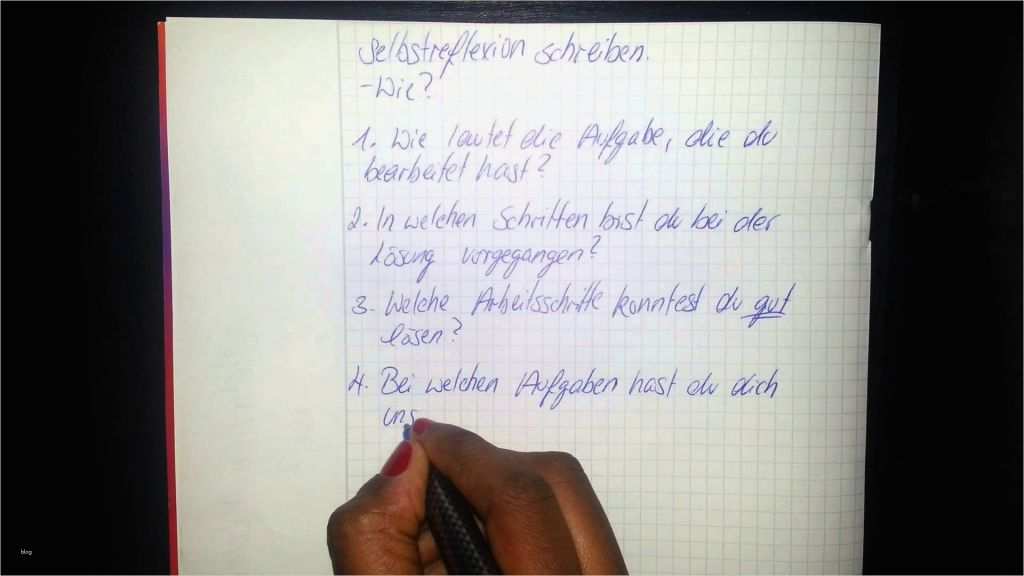 Selbstreflexion schreiben.
-Wie?
1. Wie lautet die Aufgabe, die du
bearbeitet hast?
2. In welchen Schritten bist du bei der
Lösung vorgegangen?
3. Welche Arbeitsschritte konntest du gut
lösen?
4. Bei welchen Aufgaben hast du dich
uns
blog